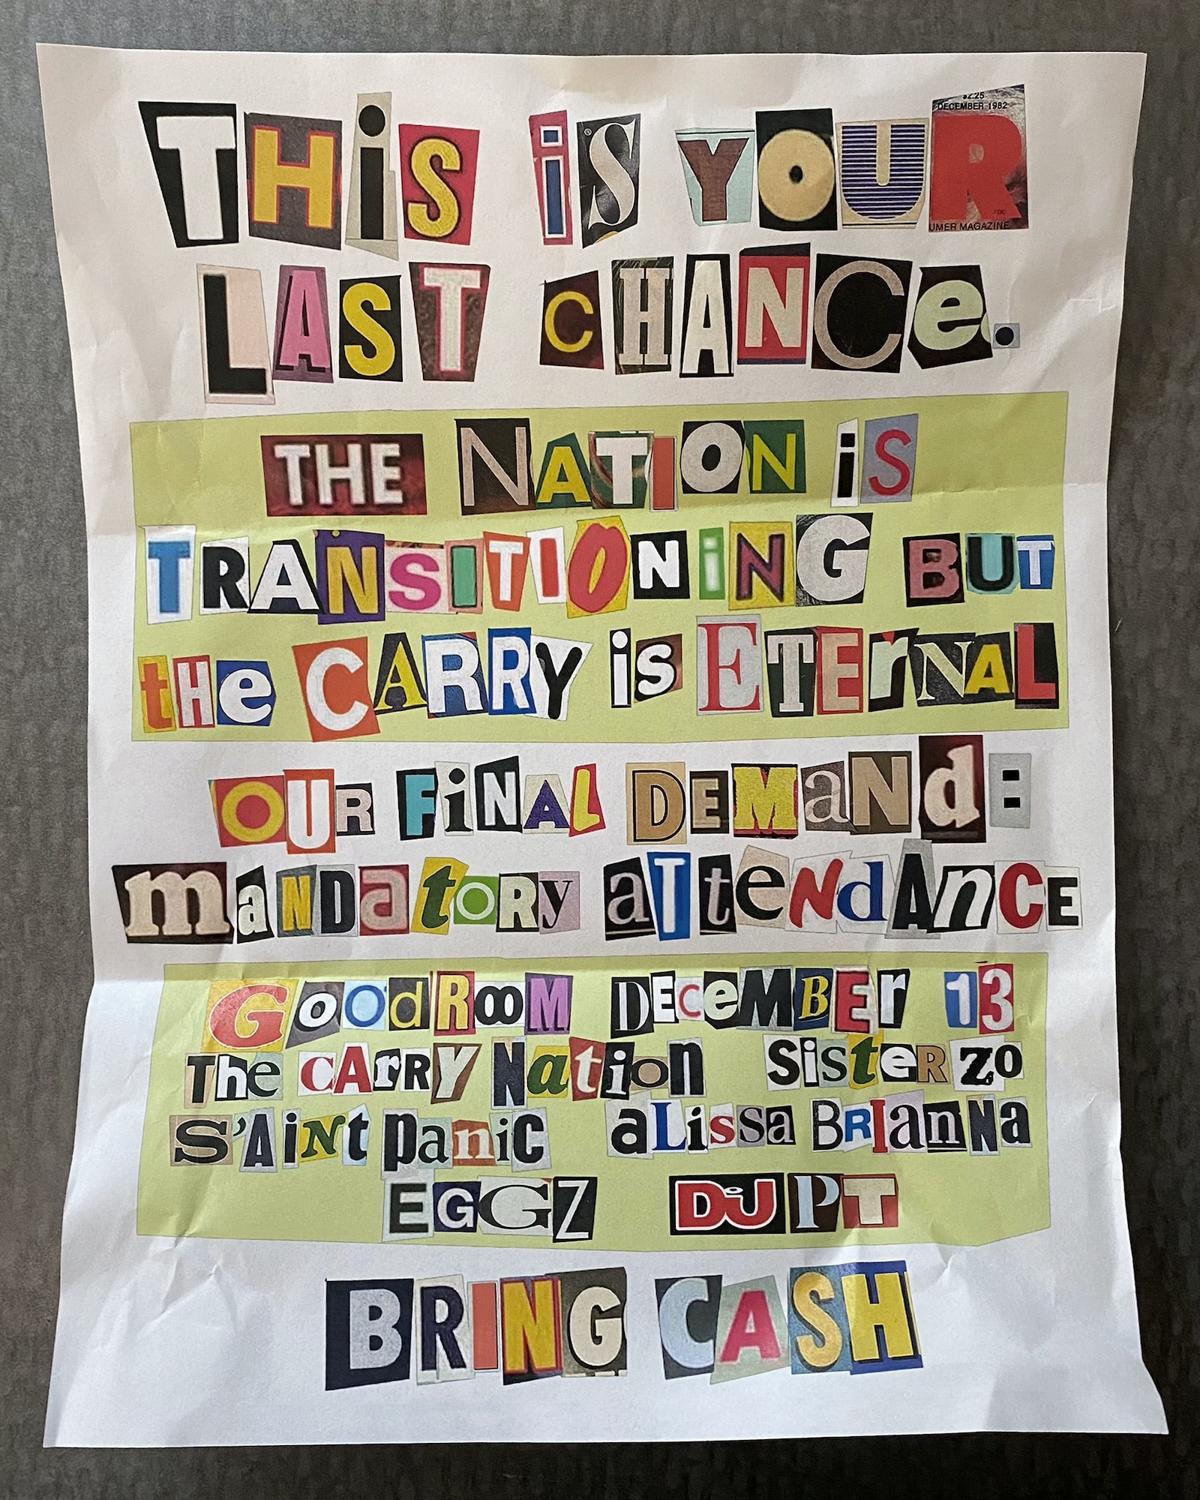 THiS iS YOUR
$2.25
DECEMBER 1982
UMER MAGAZINE
LAST CHANCe.
THE NATION iS
TRANSITIONiNG BUT
tHe CARRY is ETErNAL
OUR FiNAL DEMaNd:
maNDatORy aTteNdAnCE
GoodRooM DECeMBEr 13
The CArRY Nation SisterZo
S'AiNt paniC aLissa BRIanNa
EGGZ DJ PT
BRING CASH